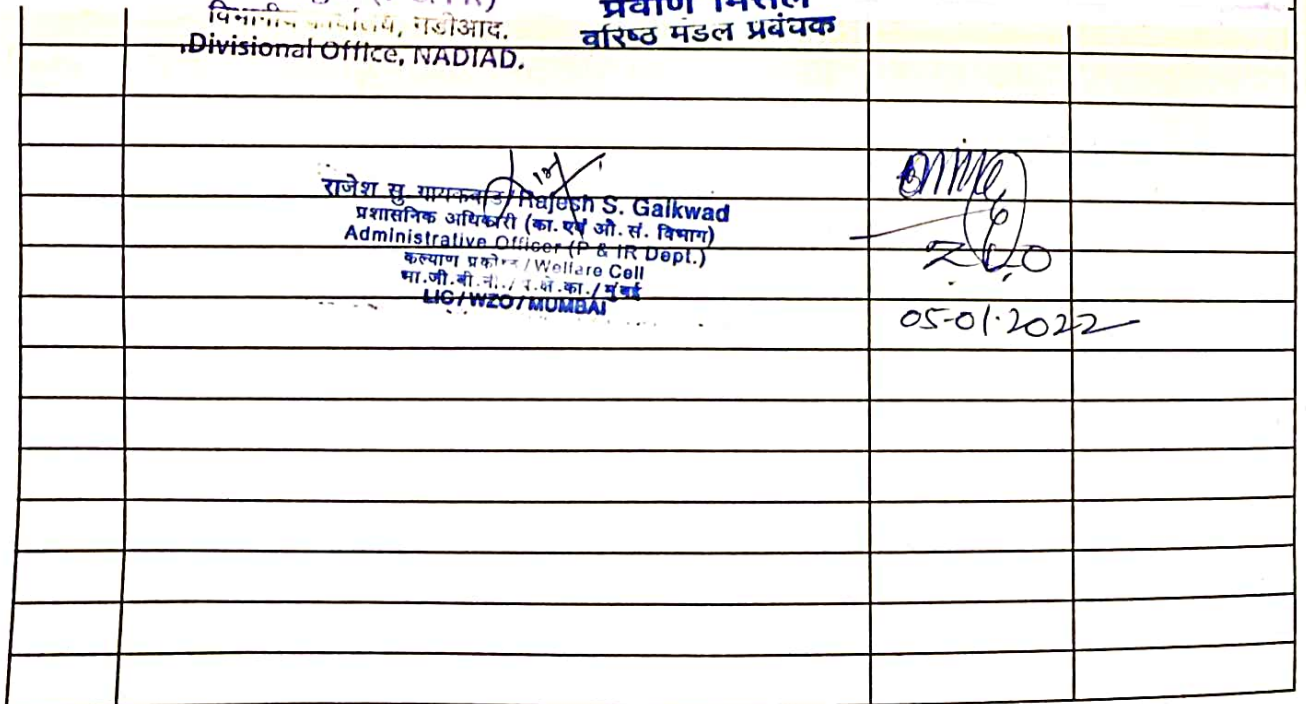 नडीआद.
,Divisional Office, NADIAD.
वरिष्ठ मंडल प्रबंधक
राजेश सु. गायकवाड / Rajesh S. Gaikwad
प्रशासनिक अधिकारी (का. एवं औ. सं. विभाग)
Administrative Officer (P & IR Dept.)
कल्याण प्रकोष्ठ / Welfare Cell
भा.जी.बी.नि. / प.क्षे.का. / मुंबई
LIC / WZO / MUMBAI
Z.U.O
05-01-2022